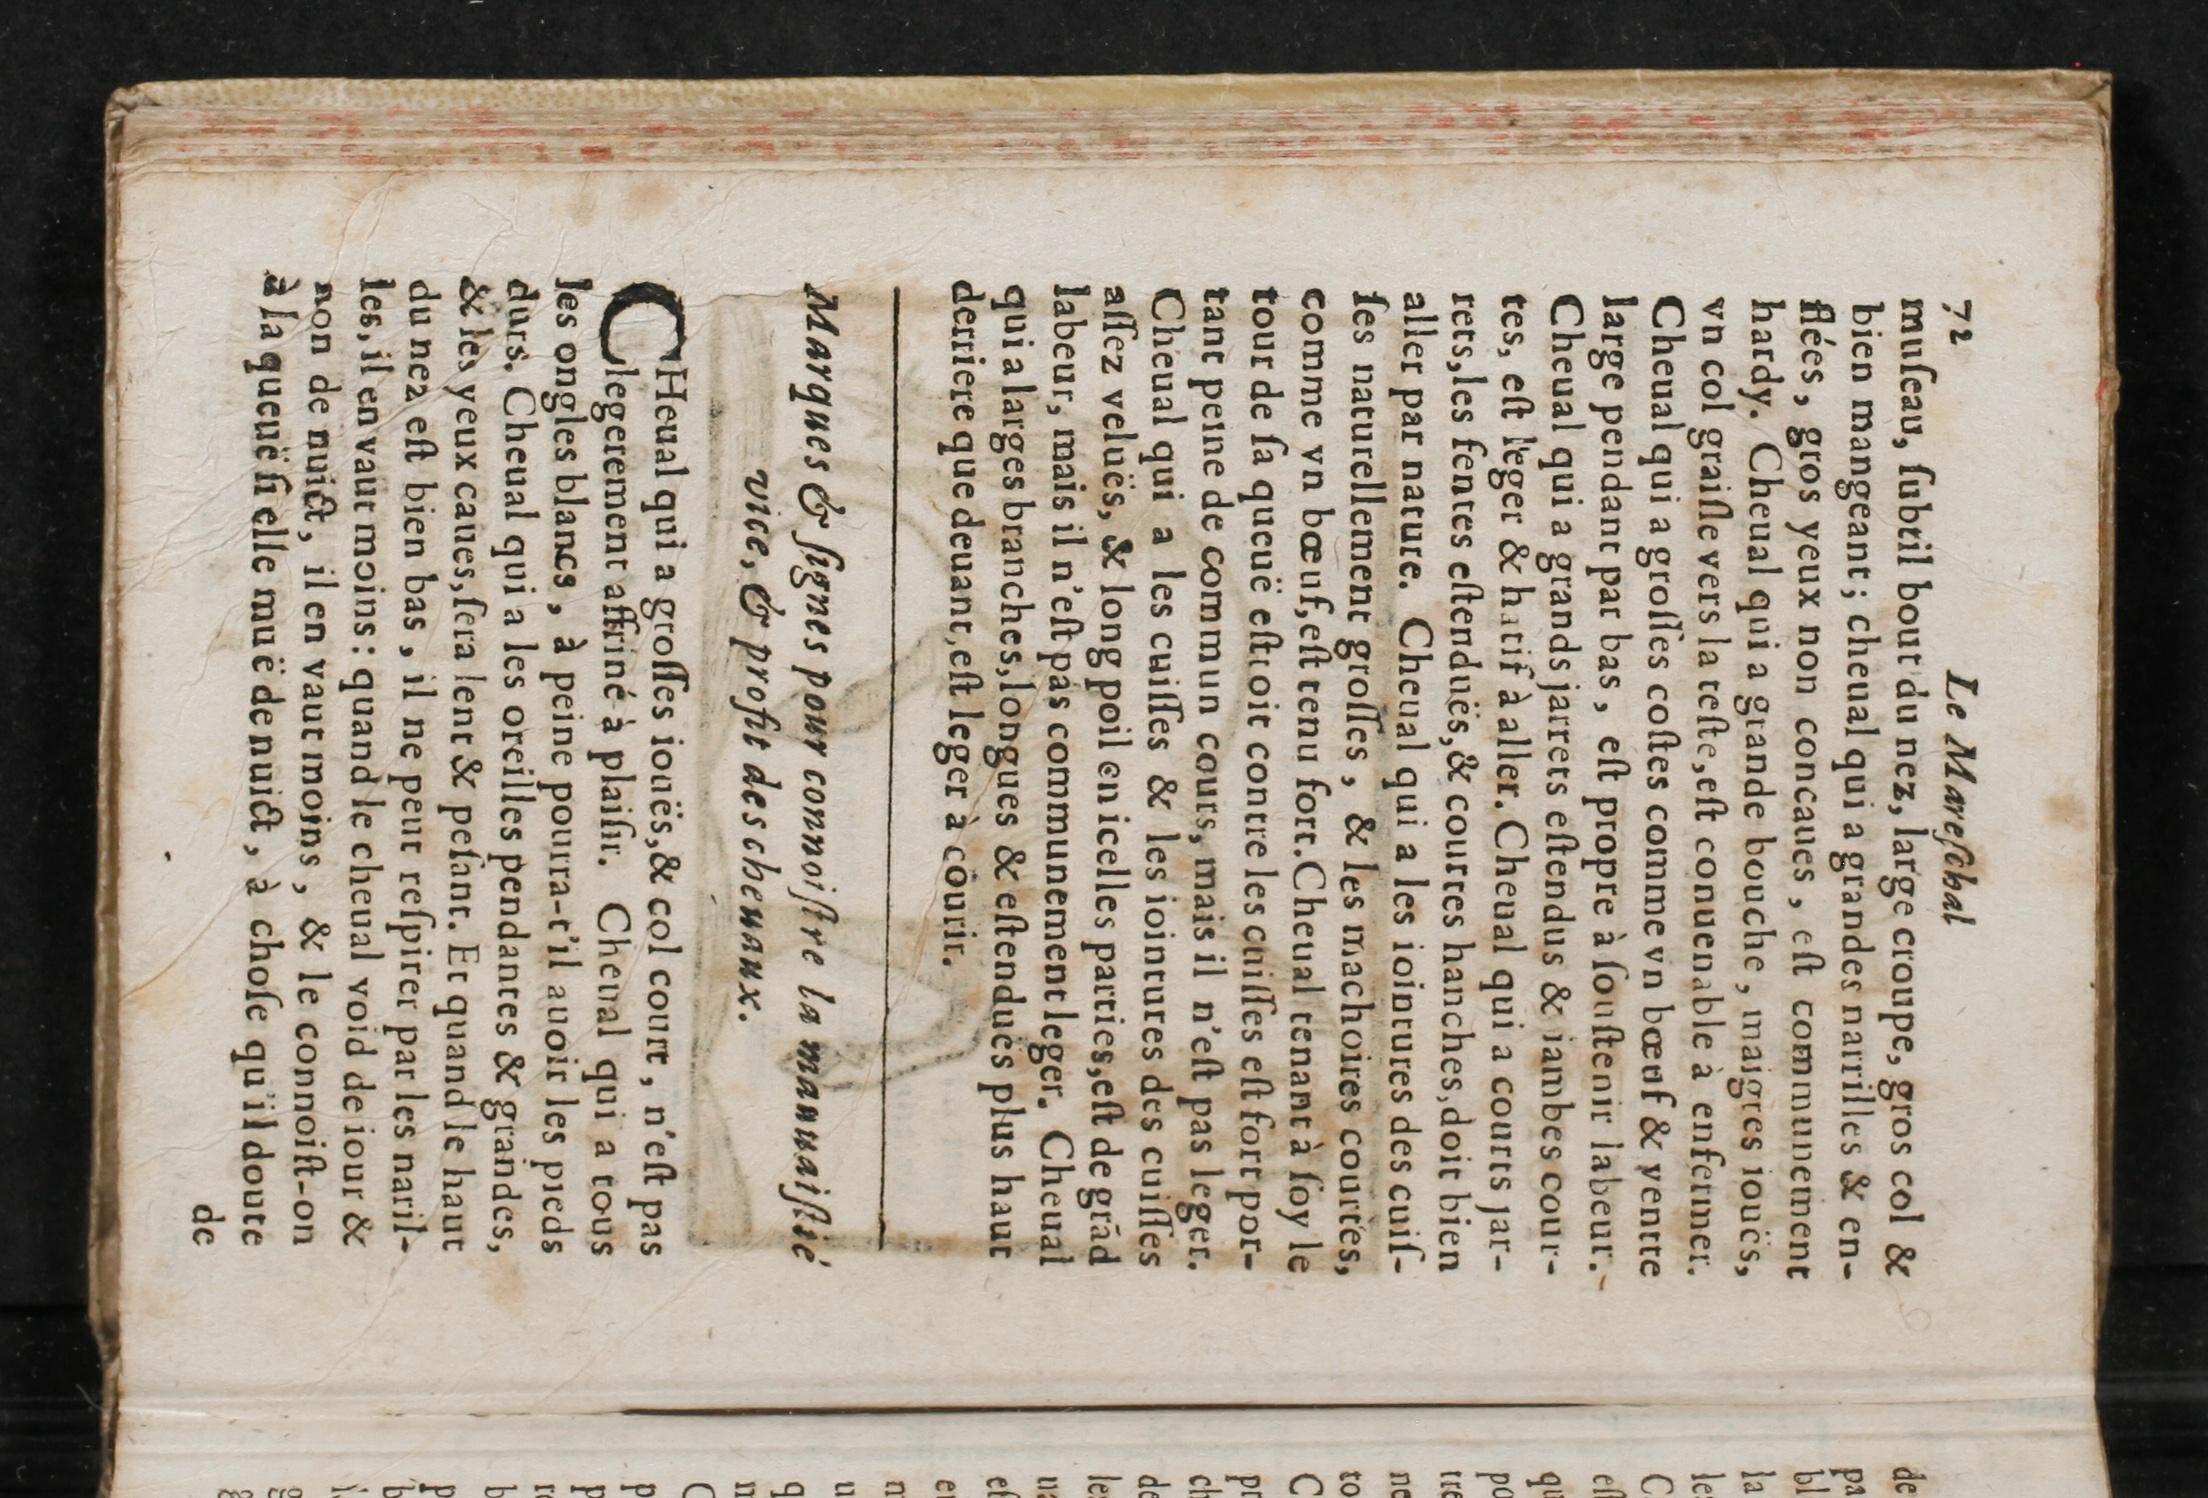 72 Le Mareſchal
muſeau, ſubtil bout du nez, large croupe, gros col &
bien mangeant; cheual qui a grandes narrilles & en-
flées, gros yeux non concaues, eſt communement
hardy. Cheual qui a grande bouche, maigres iouës,
vn col graiſle vers la teſte, eſt conuenable à enfermer.
Cheual qui a groſſes coſtes comme vn bœuf & ventre
large pendant par bas, eſt propre à ſouſtenir labeur.
Cheual qui a grands jarrets eſtendus & iambes cour-
tes, eſt leger & hatif à aller. Cheual qui a courts jar-
rets, les fentes eſtenduës, & courtes hanches, doit bien
aller par nature. Cheual qui a les iointures des cuiſ-
ſes naturellement groſſes, & les machoires courtes,
comme vn bœuf, eſt tenu fort. Cheual tenant à ſoy le
tour de ſa queuë eſtroit contre les cuiſſes eſt fort por-
tant peine de commun cours, mais il n'eſt pas leger.
Cheual qui a les cuiſſes & les iointures des cuiſſes
aſſez veluës, & long poil en icelles parties, eſt de grãd
labeur, mais il n'eſt pas communement leger. Cheual
qui a larges branches, longues & eſtenduës plus haut
derriere que deuant, eſt leger à courir.
Marques & ſignes pour connoiſtre la mauuaiſtié
vice, & profit des cheuaux.
CHeual qui a groſſes iouës, & col court, n'eſt pas
legerement affriné à plaiſir. Cheual qui a tous
les ongles blancs, à peine pourra-t'il auoir les pieds
durs. Cheual qui a les oreilles pendantes & grandes,
& les yeux caues, ſera lent & peſant. Et quand le haut
du nez eſt bien bas, il ne peut reſpirer par les naril-
les, il en vaut moins: quand le cheual void de iour &
non de nuict, il en vaut moins, & le connoiſt-on
à la queuë ſi elle muë de nuict, à choſe qu'il doute
de